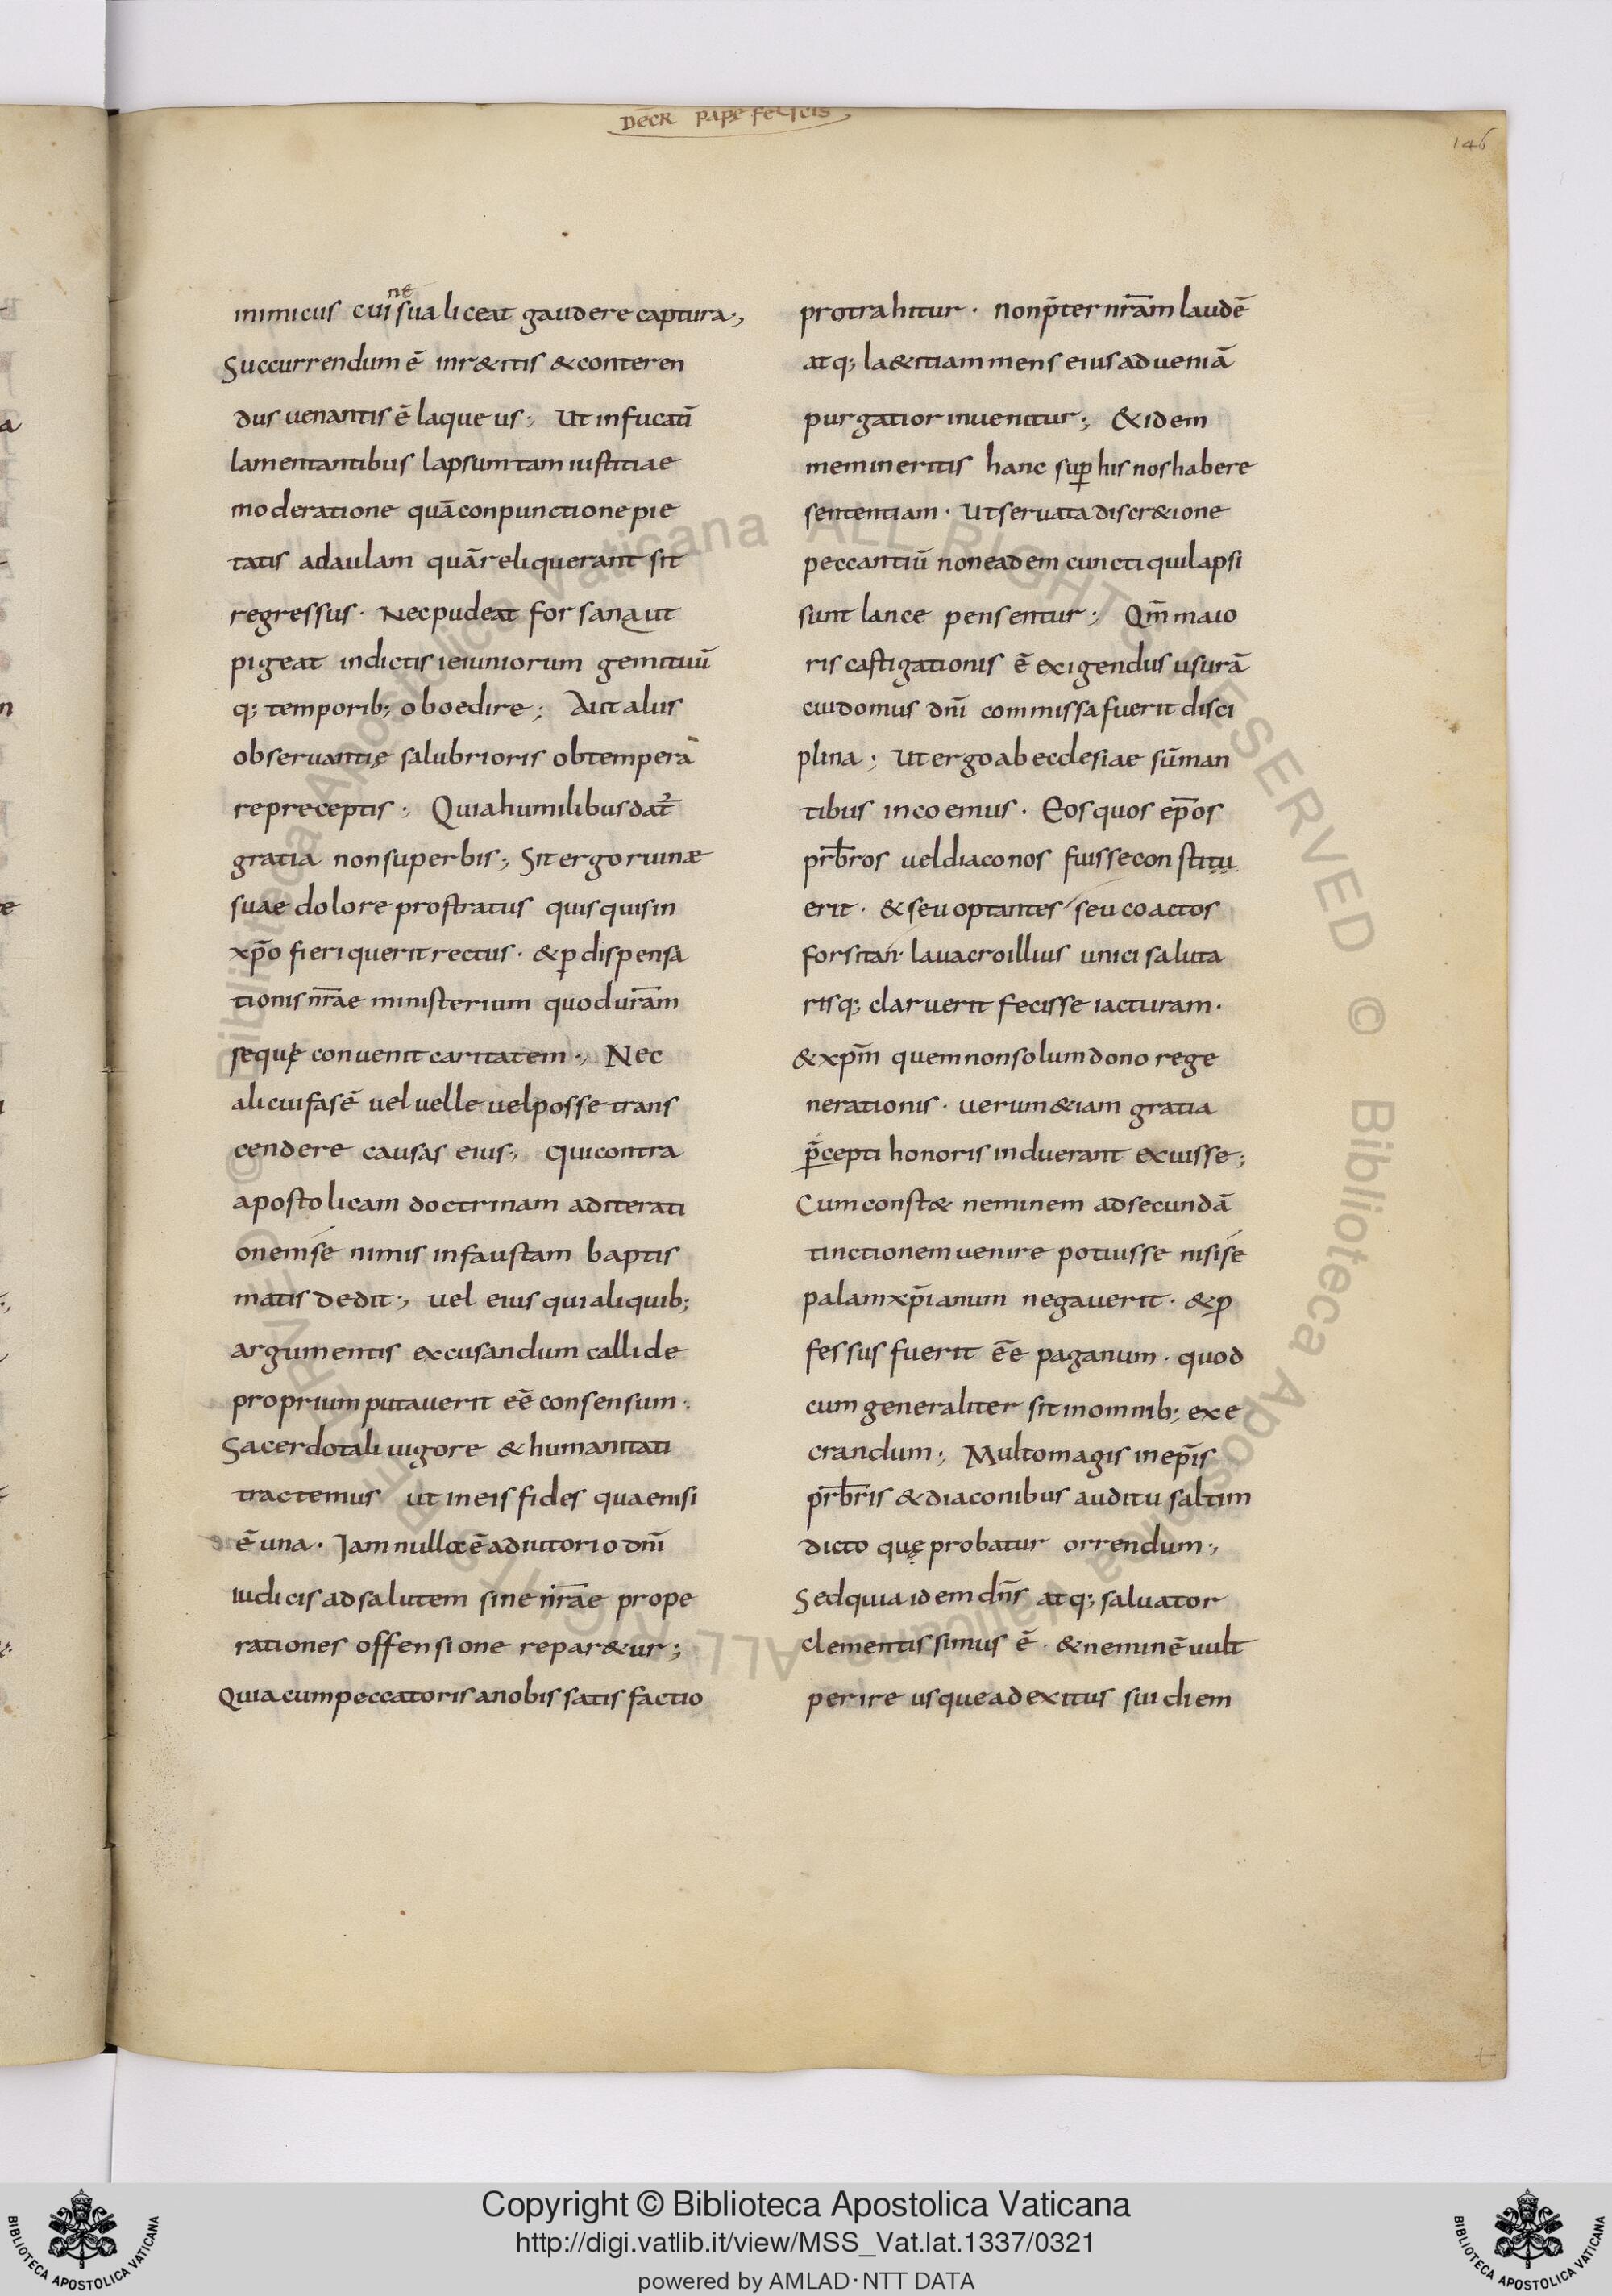 DECR PAPĘ FELICIS
146
inimicus cui ne sua liceat gaudere captura·,
Succurrendum ē inr&itis &conteren
dus uenantis ē laqueus; Ut infucatī
lamentantibus lapsum tam iustitiae
moderatione quā conpunctione pie
tatis adaulam quā reliquerant sit
regressus· Nec pudeat forsan aut
pigeat indictis ieiuniorum gemituū
q; temporib; oboedire; Aut aliis
obseruantię salubrioris obtemperā
re preceptis; Quia humilibus dat̄
gratia non superbis·, Sit ergo ruinæ
suae dolore prostratus quisquis in
xp̄o fieri querit rectus· &ꝑ dispensa
tionis nr̄ae ministerium quod ur̄am
sequę conuenit caritatem·, Nec
alicui fas ē uel uelle uel posse trans
cendere causas eius·, Qui contra
apostolicam doctrinam aditerati
onem se nimis infaustam baptis
matis dedit·, uel eius qui aliquib;
argumentis excusandum callide
proprium putauerit eē consensum·
Sacerdotali uigore & humanitati
tractemus ut in eis fides quae nisi
ē una· Iam nullo ē adiutorio dnī
iudicis ad salutem sine nr̄ae prope
rationes offensione repar&ur;
Quia cum peccatoris a nobis satisfactio
protrahitur· non ꝑter nr̄am laudē
atq; la&itiam mens eius ad ueniā
purgatior inuenitur·, & idem
memineritis hanc suꝑ his nos habere
sententiam· Ut seruata discr&ione
peccantiū non eadem cuncti qui lapsi
sunt lance pensentur; Qm̄ maio
ris castigationis ē exigendus usurā
cui domus dnī commissa fuerit disci
plina; Ut ergo ab ecclesiae sūman
tibus incoemus· Eos quos ep̄os
pr̄b̄ros uel diaconos fuisse constitu
erit· & seu optantes seu coactos
forsitan· lauacro illius unici saluta
risq; claruerit fecisse iacturam·
& xpm̄ quem non solum dono rege
nerationis· uerum &iam gratia
p̄cepti honoris induerant exuisse;
Cum const& neminem ad secundā
tinctionem uenire potuisse nisi se
palam xp̄ianum negauerit· &ꝓ
fessus fuerit eē paganum· quod
cum generaliter sit in omnib; exe
crandum·, Multo magis in ep̄is
pr̄b̄ris & diaconibus auditu saltim
dicto quę probatur orrendum·,
Sed quia idem dn̄s atq; saluator
clementissimus ē· & neminē uult
perire usque ad exitus sui diem
Copyright © Biblioteca Apostolica Vaticana
http://digi.vatlib.it/view/MSS_Vat.lat.1337/0321
powered by AMLAD·NTT DATA
BIBLIOTECA APOSTOLICA VATICANA
BIBLIOTECA APOSTOLICA VATICANA